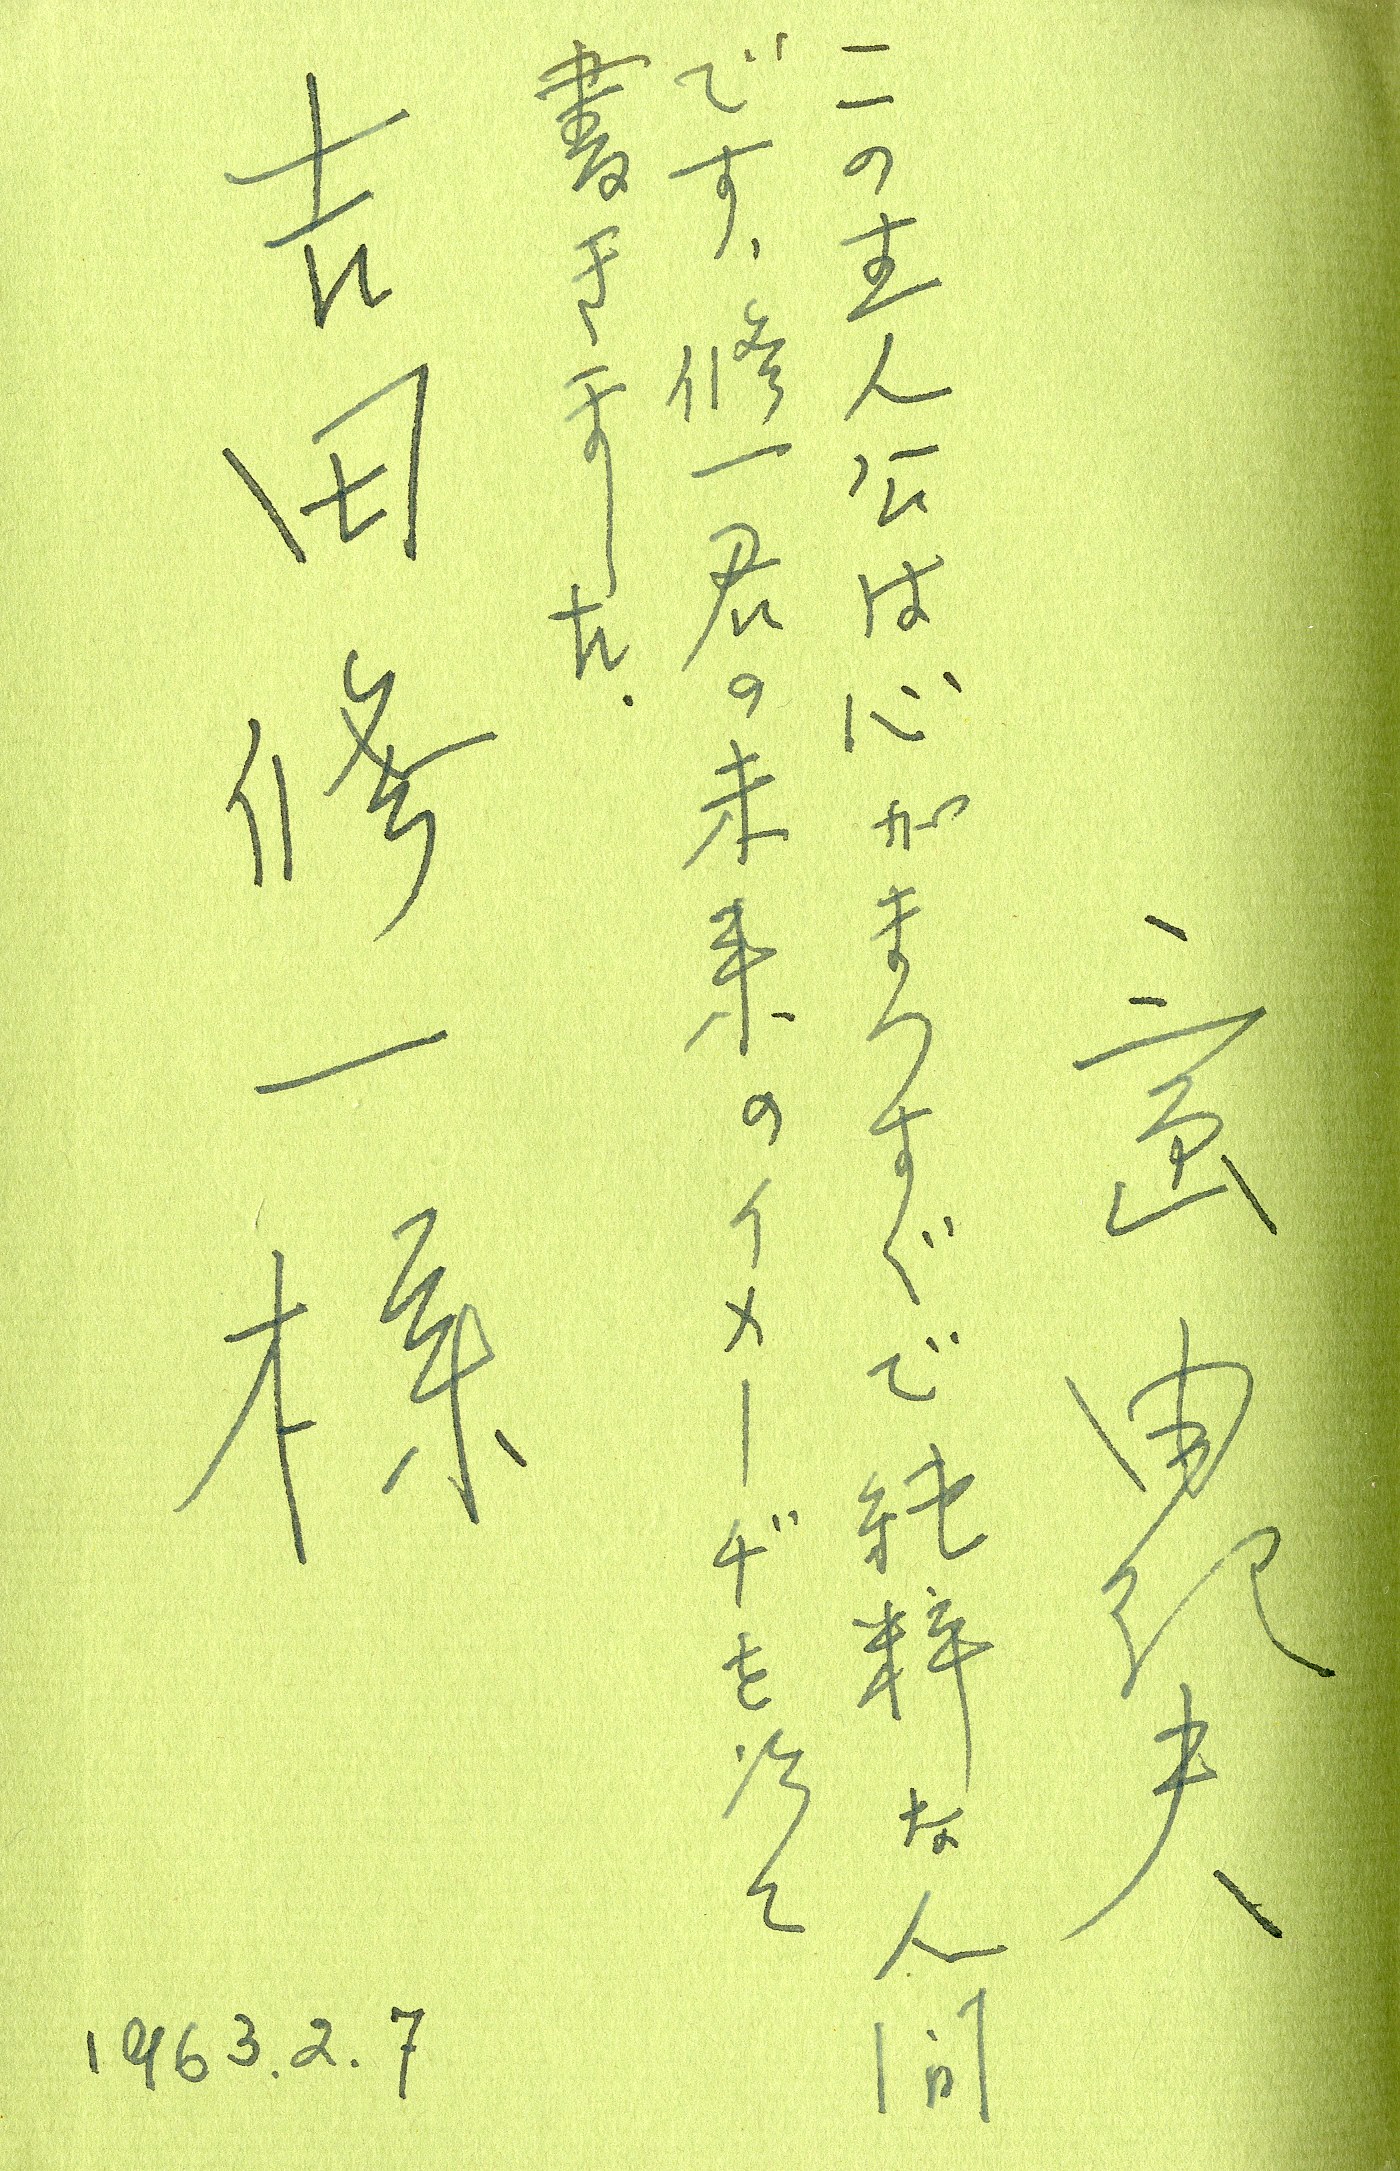 三島由紀夫
この主人公は心がまっすぐで純粋な人間
です、修一君の未来のイメーヂを
書きました.
吉田修一様
1963.2.7